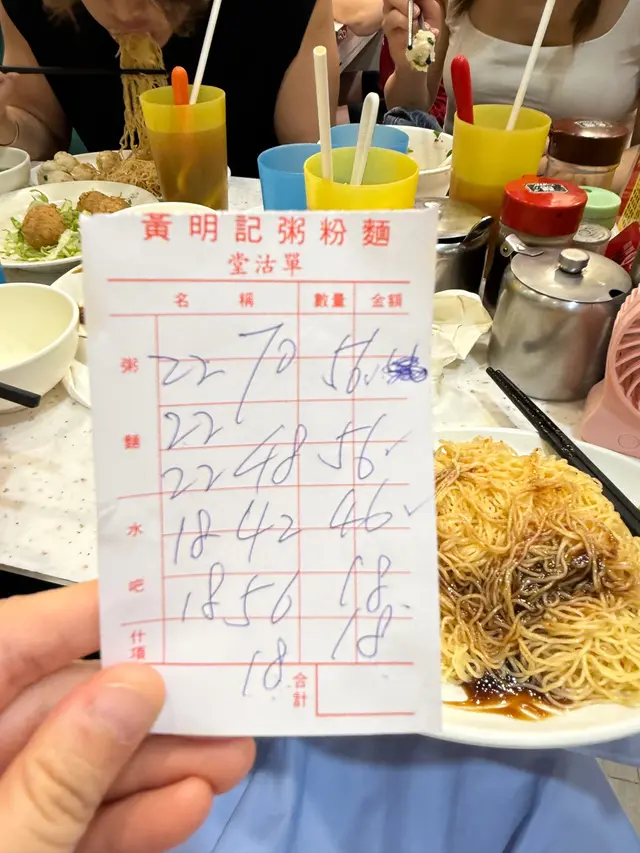 黃明記粥粉麵
堂沽單
名稱 數量 金額
粥
麵
水
吧
什項
22 70 56
22
22 48 56
18 42 46
18 56 18
18 18
合計